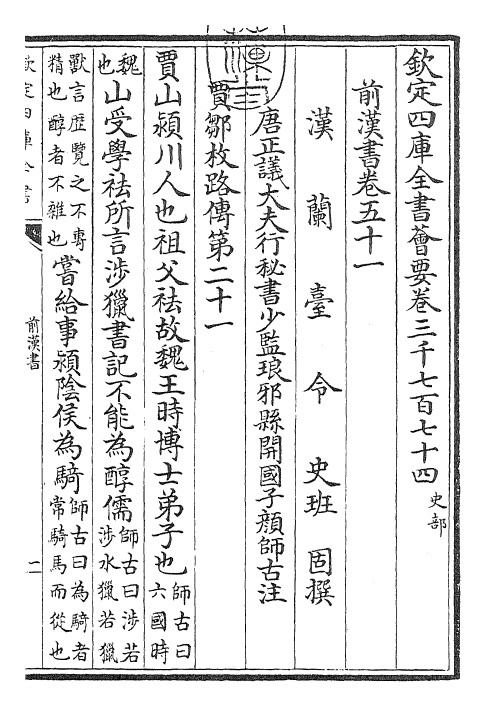 欽定四庫全書薈要卷三千七百七十四 史部
前漢書卷五十一
漢蘭臺令史班固撰
唐正議大夫行秘書少監琅邪縣開國子顔師古注
賈鄒枚路傳第二十一
賈山潁川人也祖父袪故魏王時博士弟子也師古曰六國時
魏也山受學袪所言涉獵書記不能為醇儒師古曰涉若涉水獵若獵
獸言歴覽之不專精也醇者不雜也嘗給事潁隂侯為騎師古曰為騎者常騎馬而從也
欽定四庫全書
前漢書
二